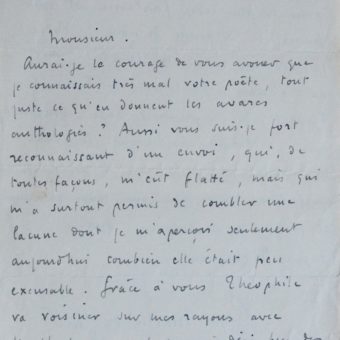 Monsieur.
Aurai-je le courage de vous avouer que
je connaissais très mal votre poëte, tout
juste ce qu'en donnent les avares
anthologies ? Aussi vous suis-je fort
reconnaissant d'un envoi, qui, de
toutes façons, m'eût flatté, mais qui
m'a surtout permis de combler une
lacune dont je m'aperçois seulement
aujourd'hui combien elle était peu
excusable. Grâce à vous Théophile
va voisiner sur mes rayons avec